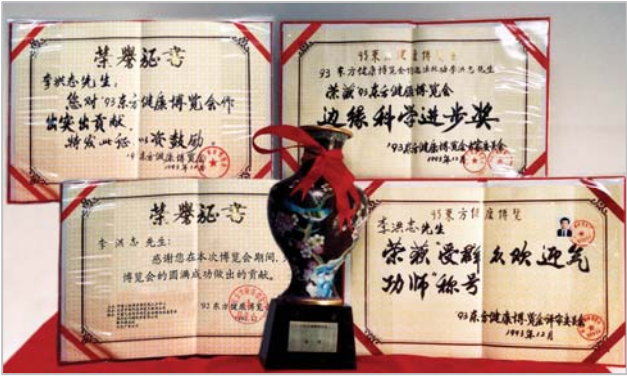 荣誉证书
李洪志先生:
您对'93东方健康博览会作
出突出贡献.
特发此证,以资鼓励.
'93东方健康博览会
1993年12月
93东方健康博览会
93东方健康博览会
李洪志先生
荣获'93东方健康博览会
边缘科学进步奖
'93东方健康博览会评审委员会
1993年12月
荣誉证书
李洪志先生:
感谢您在本次博览会期间,
博览会的圆满成功做出的贡献.
'92东方健康博览会
1992.12
93东方健康博览
李洪志先生
荣获"受群众欢迎气
功师"称号
'93东方健康博览会评审委员会
1993年12月